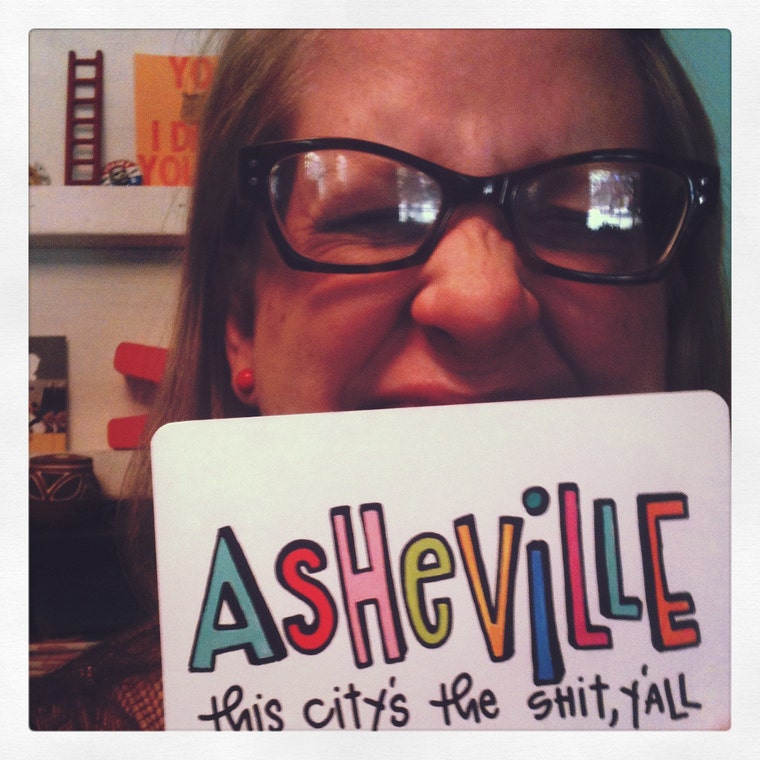 YO
I D
YOU
ASHeViLLE
this city's the shit, y'all